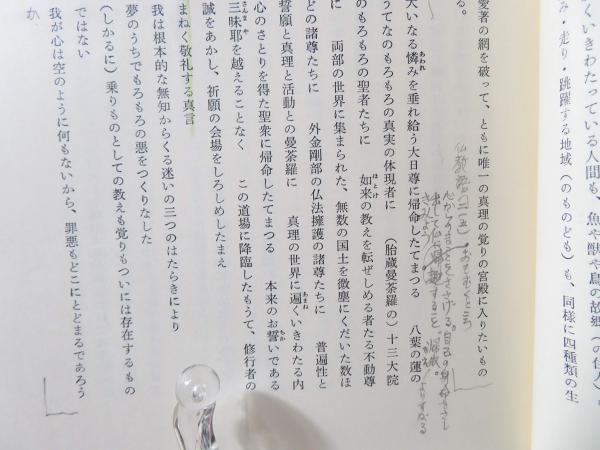 くいきわたっている人間も、魚や獣や鳥の故郷（の住人）も
み・走り・跳躍する地域（のものども）も、同様に四種類の生
愛著の網を破って、ともに唯一の真理の覚りの宮殿に入りたいもの
る。
大いなる憐みを垂れ給う大日尊に帰命したてまつる　八葉の蓮の
うてなのもろもろの真実の体現者に　（胎蔵曼荼羅の）十三大院
のもろもろの聖者たちに　如来の教えを転ぜしめる者たる不動尊
に　両部の世界に集まられた、無数の国土を微塵にくだいた数ほ
どの諸尊たちに　外金剛部の仏法擁護の諸尊たちに　普遍性と
誓願と真理と活動との曼荼羅に　真理の世界に遍くいきわたる内
心のさとりを得た聖衆に帰命したてまつる　本来のお誓いである
三昧耶を越えることなく　この道場に降臨したもうて、修行者の
誠をあかし、祈願の会場をしろしめしたまえ
まねく敬礼する真言
我は根本的な無知からくる迷いの三つのはたらきにより
夢のうちでもろもろの悪をつくりなした
（しかるに）乗りものとしての教えも覚りもついには存在するもの
ではない
我が心は空のように何もないから、罪悪もどこにとどまるであろう
か、